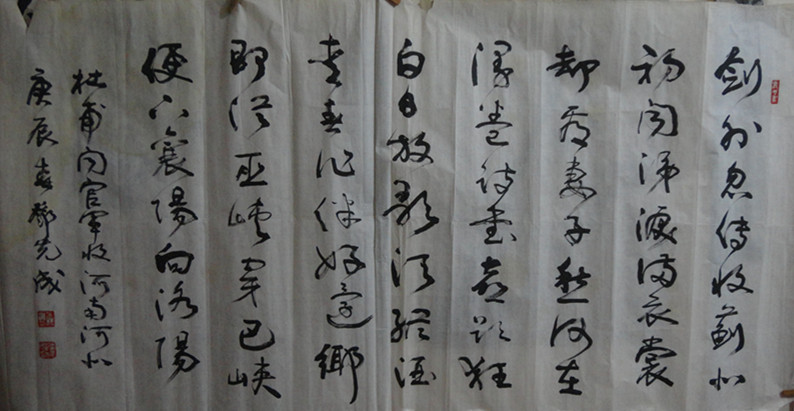 剑外忽传收蓟北
初闻涕泪满衣裳
却看妻子愁何在
漫卷诗书喜欲狂
白日放歌须纵酒
青春作伴好还乡
即从巫峡穿巴峡
便下襄阳向洛阳
杜甫闻官军收河南河北
庚辰春 先成